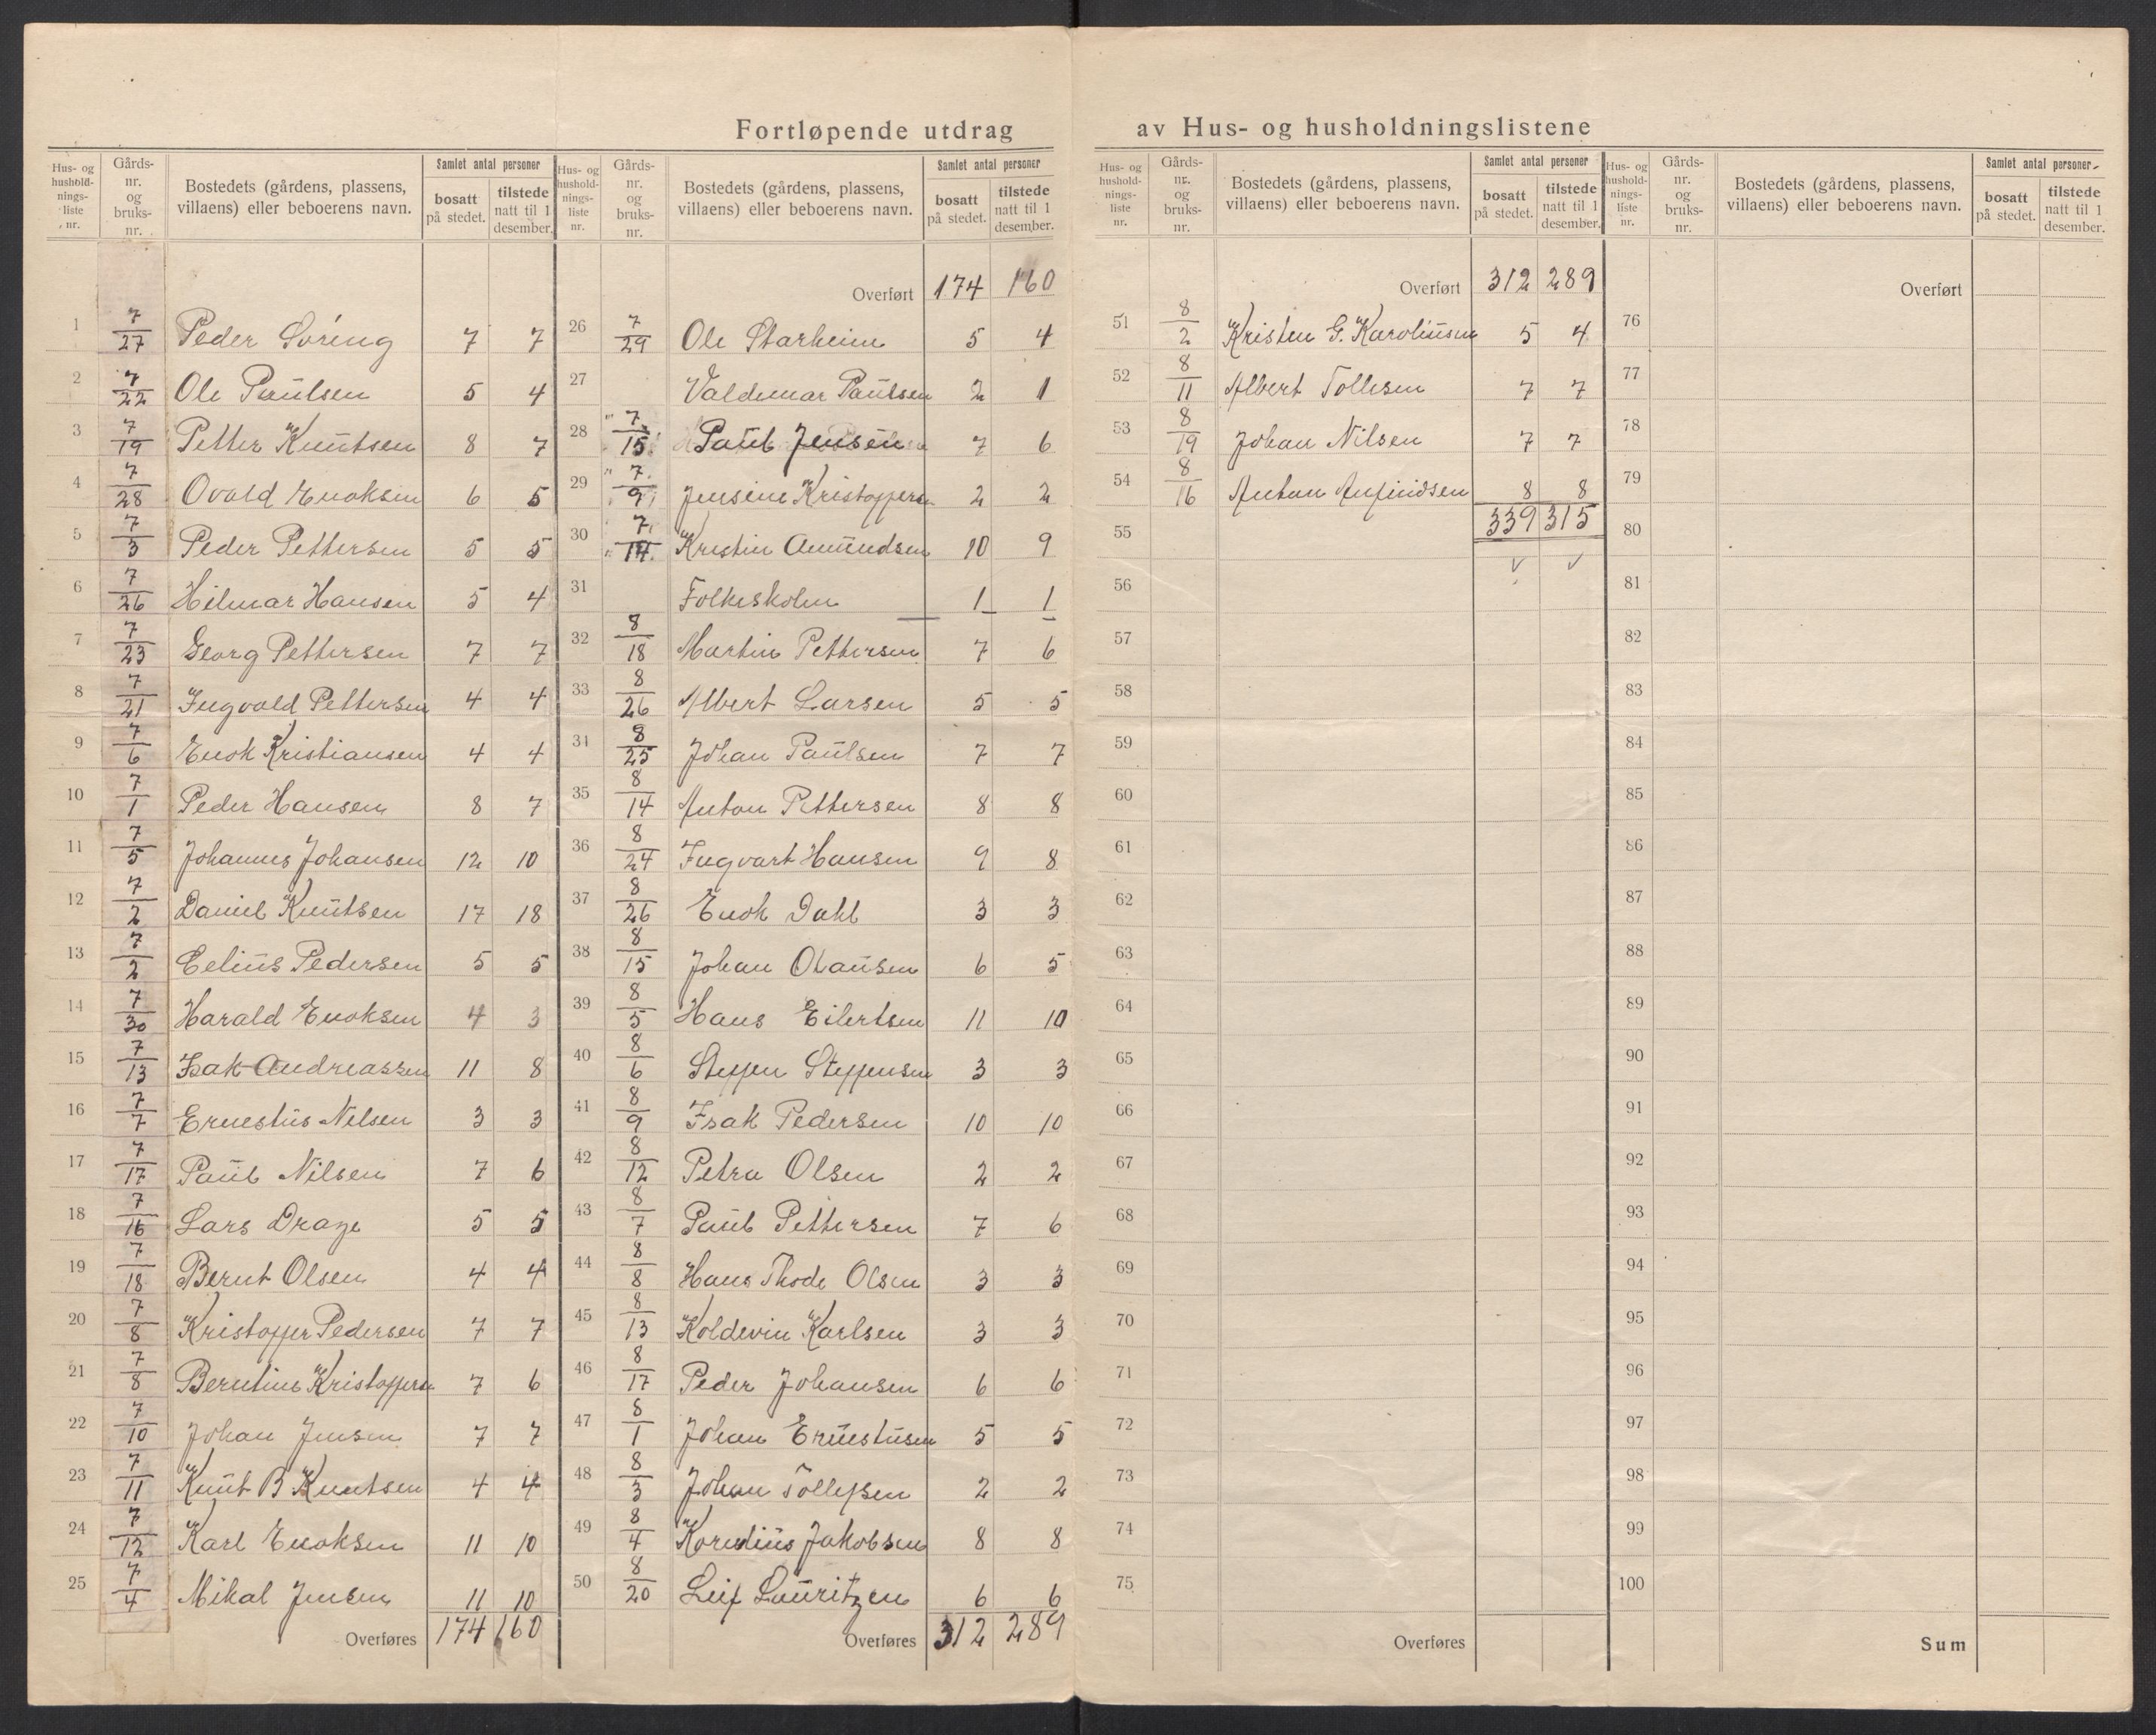 Fortløpende utdrag av Hus- og husholdningslistene
Hus- og hushold-nings-liste nr. | Gårds-nr. og bruks-nr. | Bostedets (gårdens, plassens, villaens) eller beboerens navn. | Samlet antal personer: bosatt på stedet. | tilstede natt til 1 desember.
1 7/27 Peder Søring 7 7
2 7/22 Ole Paulsen 5 4
3 7/19 Petter Knutsen 8 7
4 7/28 Ovald Enoksen 6 5
5 7/3 Peder Pettersen 5 5
6 7/26 Hilmar Hansen 5 4
7 7/23 Georg Pettersen 7 7
8 7/21 Ingvald Pettersen 4 4
9 7/6 Enok Kristiansen 4 4
10 7/1 Peder Hansen 8 7
11 7/5 Johannes Johansen 12 10
12 7/2 Daniel Knutsen 17 18
13 7/2 Edvard Pedersen 5 5
14 7/30 Harald Enoksen 4 3
15 7/13 Isak Andreassen 11 8
16 7/7 Ernestus Nilsen 3 3
17 7/17 Paul Nilsen 7 6
18 7/16 Lars Drage 5 5
19 7/18 Bernt Olsen 4 4
20 7/8 Kristoffer Pedersen 7 7
21 7/8 Berntine Kristoffersen 7 6
22 7/10 Johan Jensen 7 7
23 7/11 Knut B Knutsen 4 4
24 7/12 Karl Enoksen 11 10
25 7/4 Mikal Jensen 11 10
Overføres 174 160
Hus- og hushold-nings-liste nr. | Gårds-nr. og bruks-nr. | Bostedets (gårdens, plassens, villaens) eller beboerens navn. | Samlet antal personer: bosatt på stedet. | tilstede natt til 1 desember.
Overført 174 160
26 7/29 Ole Starheim 5 4
27 Valdemar Paulsen 2 1
28 7/15 Paul Jensen 7 6
29 7/9 Jensine Kristoffersen 2 2
30 7/14 Kristin Amundsen 10 9
31 Folkeskolen 1 1
32 8/18 Martin Pettersen 7 6
33 8/26 Albert Larsen 5 5
34 8/25 Johan Paulsen 7 7
35 8/14 Anton Pettersen 8 8
36 8/24 Ingvart Hansen 9 8
37 8/26 Enok Dahl 3 3
38 8/15 Johan Olausen 6 5
39 8/5 Hans Eilertsen 11 10
40 8/6 Steffen Steffensen 3 3
41 8/9 Isak Pedersen 10 10
42 8/12 Petra Olsen 2 2
43 8/7 Paul Pettersen 7 6
44 8/8 Hans Thode Olsen 3 3
45 8/13 Koldevin Karlsen 3 3
46 8/17 Peder Johansen 6 6
47 8/1 Johan Ernestusen 5 5
48 8/3 Johan Tollefsen 2 2
49 8/4 Kornelius Jakobsen 8 8
50 8/20 Leif Lauritzen 6 6
Overføres 312 289
Hus- og hushold-nings-liste nr. | Gårds-nr. og bruks-nr. | Bostedets (gårdens, plassens, villaens) eller beboerens navn. | Samlet antal personer: bosatt på stedet. | tilstede natt til 1 desember.
Overført 312 289
51 8/2 Kristen G. Karoliusen 5 4
52 8/11 Albert Tollesen 7 7
53 8/19 Johan Nilsen 7 7
54 8/16 Anton Anfindsen 8 8
55 339 315
56
57
58
59
60
61
62
63
64
65
66
67
68
69
70
71
72
73
74
75
Overføres
Hus- og hushold-nings-liste nr. | Gårds-nr. og bruks-nr. | Bostedets (gårdens, plassens, villaens) eller beboerens navn. | Samlet antal personer: bosatt på stedet. | tilstede natt til 1 desember.
Overført
76
77
78
79
80
81
82
83
84
85
86
87
88
89
90
91
92
93
94
95
96
97
98
99
100
Sum